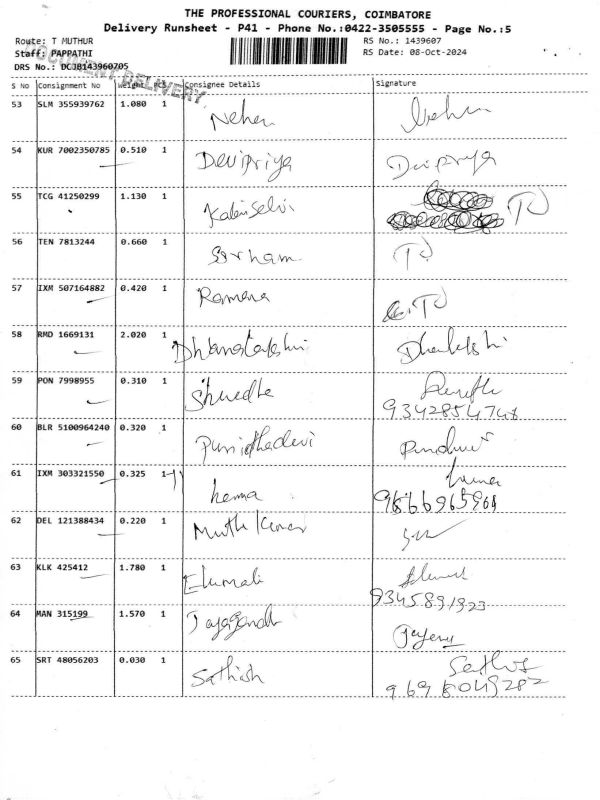 THE PROFESSIONAL COURIERS, COIMBATORE
Delivery Runsheet - P41 - Phone No.:0422-3505555 - Page No.:5
Route: T MUTHUR
RS No.: 1439607
Staff: PAPPATHI
RS Date: 08-Oct-2024
DRS No.: DCJB143960705
DOCUMENT DELIVERY
S No Consignment No Weight PCS Consignee Details Signature
53 SLM 355939762 1.080 1 Nehru
54 KUR 7002350785 0.510 1 Devipriya Devipriya
55 TCG 41250299 1.130 1 Kalaiselvi
56 TEN 7813244 0.660 1
57 IXM 507164882 0.420 1 Ramana
58 RMD 1669131 2.020 1
59 PON 7998955 0.310 1
9342854748
60 BLR 5100964240 0.320 1 Punithadevi
61 IXM 303321550 0.325 1 hema
62 DEL 121388434 0.220 1 Muthkumar
63 KLK 425412 1.780 1 Elumali
9345891923
64 MAN 315199 1.570 1
65 SRT 48056203 0.030 1 Sathish